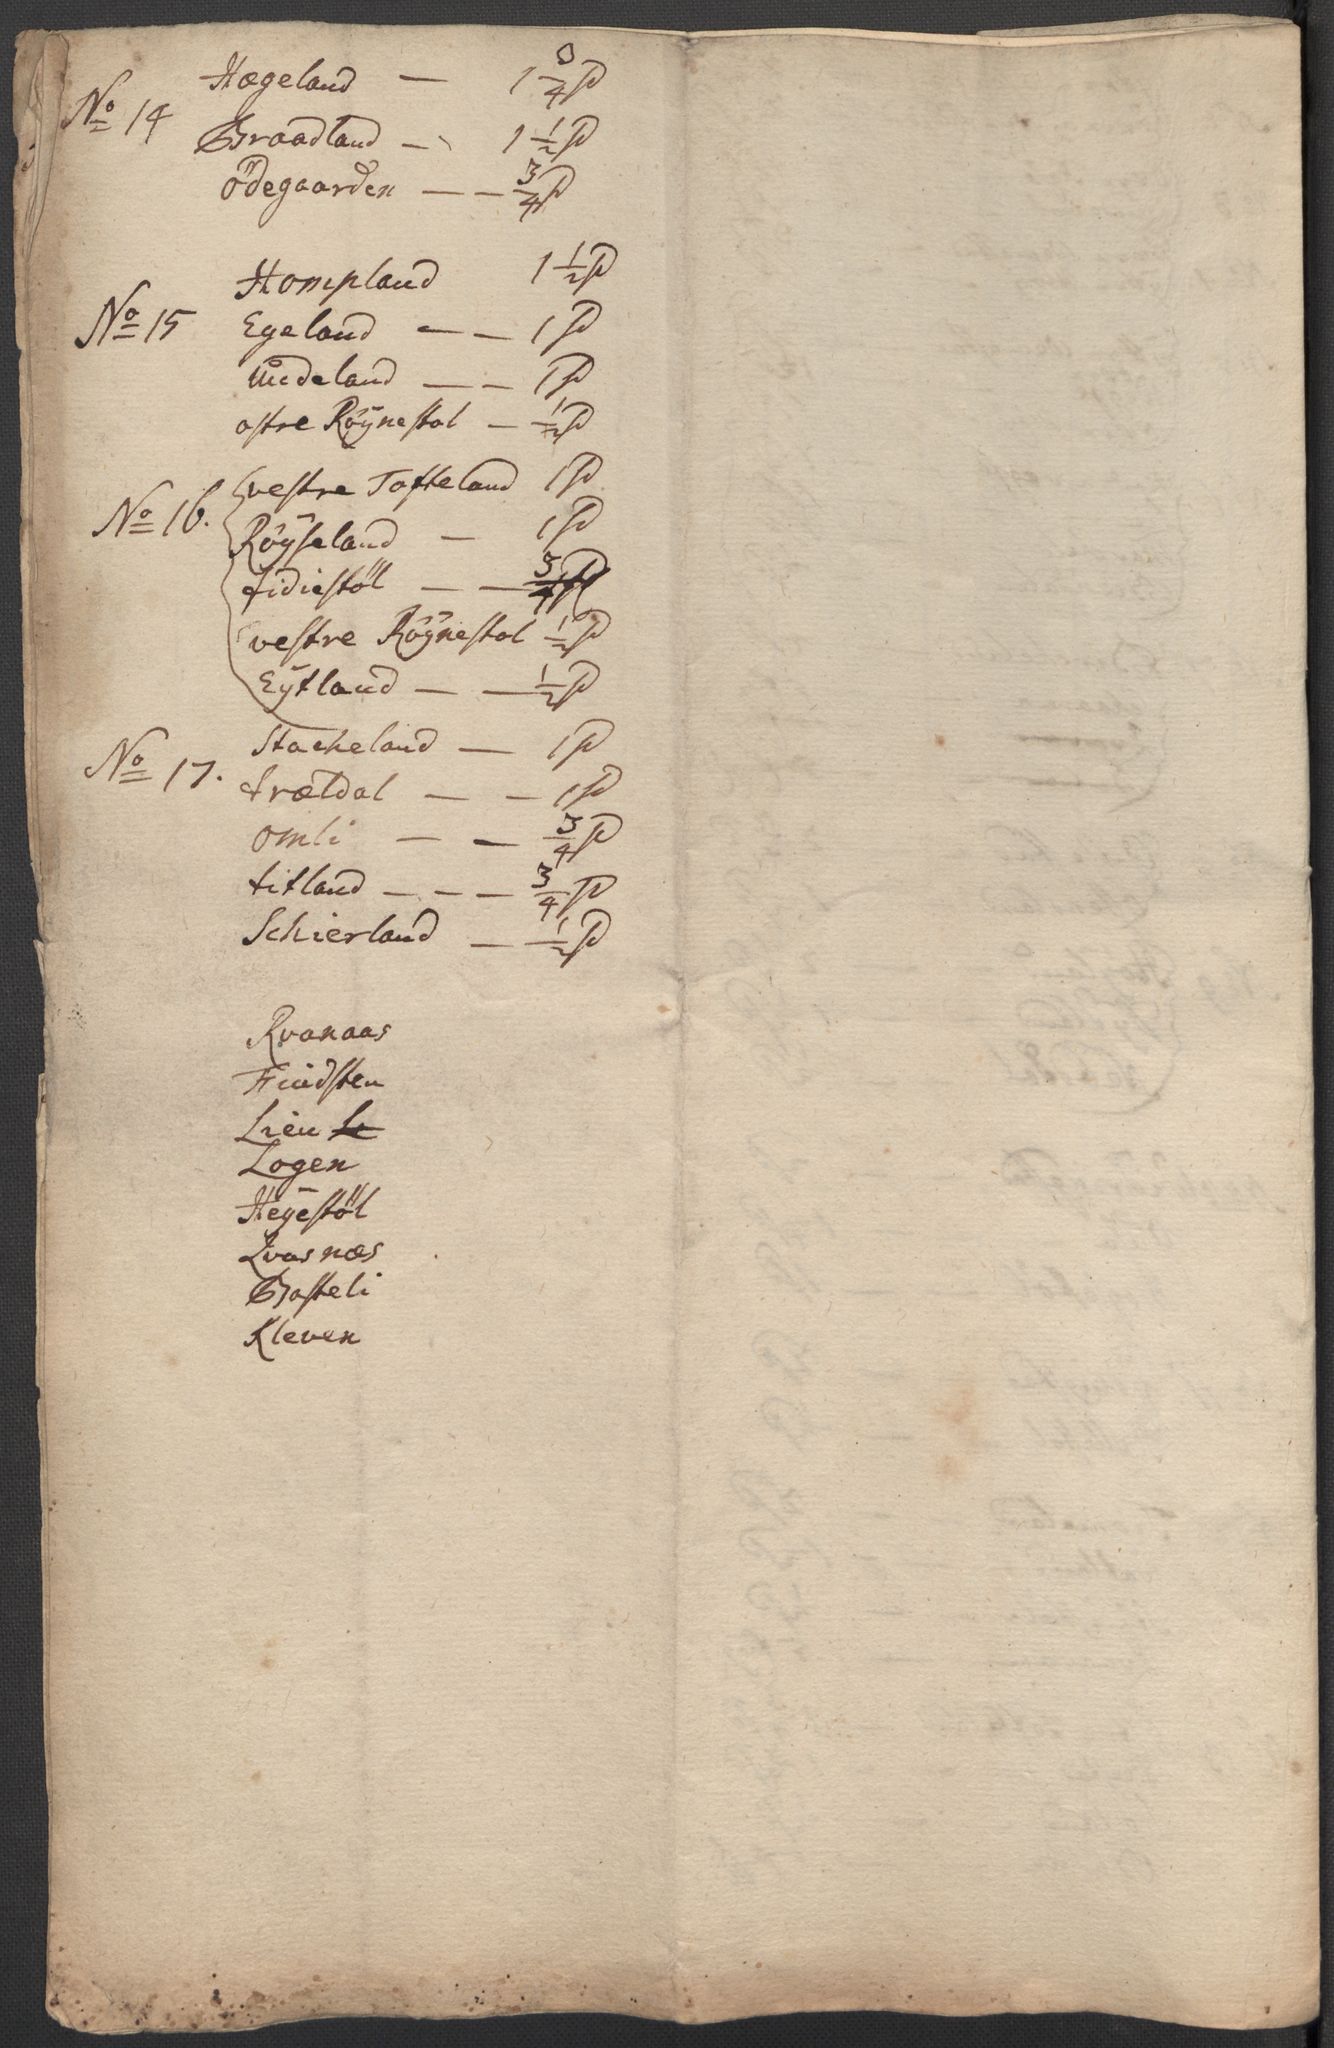 No 14 Hægeland — 1 3/4 P
Braadland — 1 1/2 P
ödegaarden — — 3/4 P
Hompland 1 1/2 P
No 15 Egeland — — 1 P
Uudeland — — 1 P
ostre Röynestol — 1/2 P
No 16. vestre Tofteland 1 P
Röyseland — 1 P
fidiestöl — — 3/4 P
vestre Röynestol 1/2 P
Eytland — — 1/2 P
No 17. Stacheland — 1 P
trældal — — 1 P
omli — — 3/4 P
titland — — — 3/4 P
Schierland — 1/2 P
Rvanaas
Fuidsten
Lien
Logen
Heyestöl
Qvasnæs
Bosteli
Kleven